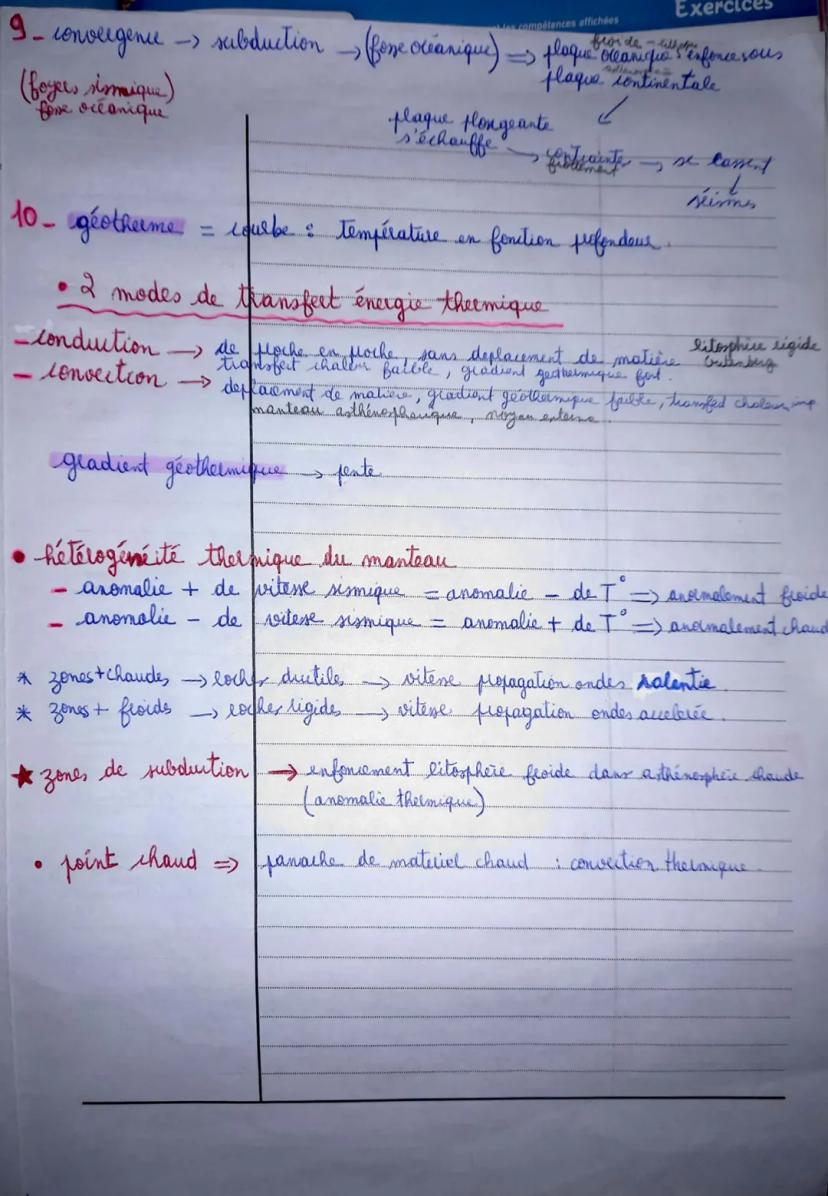 Exercices
les compétences affichées
9- convergence → subduction → (fosse océanique) ⇒ plaque océanique s'enfonce sous
froide
(foyers sismique) plaque continentale
fosse océanique
plaque plongeante
s'échauffe → contrainte → se cassent
frottement
↓
séismes
10- géotherme = courbe : température en fonction profondeur.
• 2 modes de transfert énergie thermique
- conduction → de proche en proche, sans deplacement de matière litosphère rigide
transfert chaleur faible, gradient geothermique fort. Gutenberg
- convection → deplacement de matière, gradient géothermique faible, transfert chaleur imp
manteau asthénospherique, noyau externe.
gradient géothermique → pente
• hétérogénéité thermique du manteau
- anomalie + de vitesse sismique = anomalie - de T° ⇒ anormalement froide
- anomalie - de vitesse sismique = anomalie + de T° ⇒ anormalement chaud
* zones + chaudes → roches ductiles → vitesse propagation ondes ralentie.
* zones + froids → roches rigides → vitesse propagation ondes accelerée.
★ zones de subduction → enfoncement litosphère froide dans asthénosphère chaude
(anomalie thermique)
• point chaud ⇒ panache de materiel chaud : convection thermique.